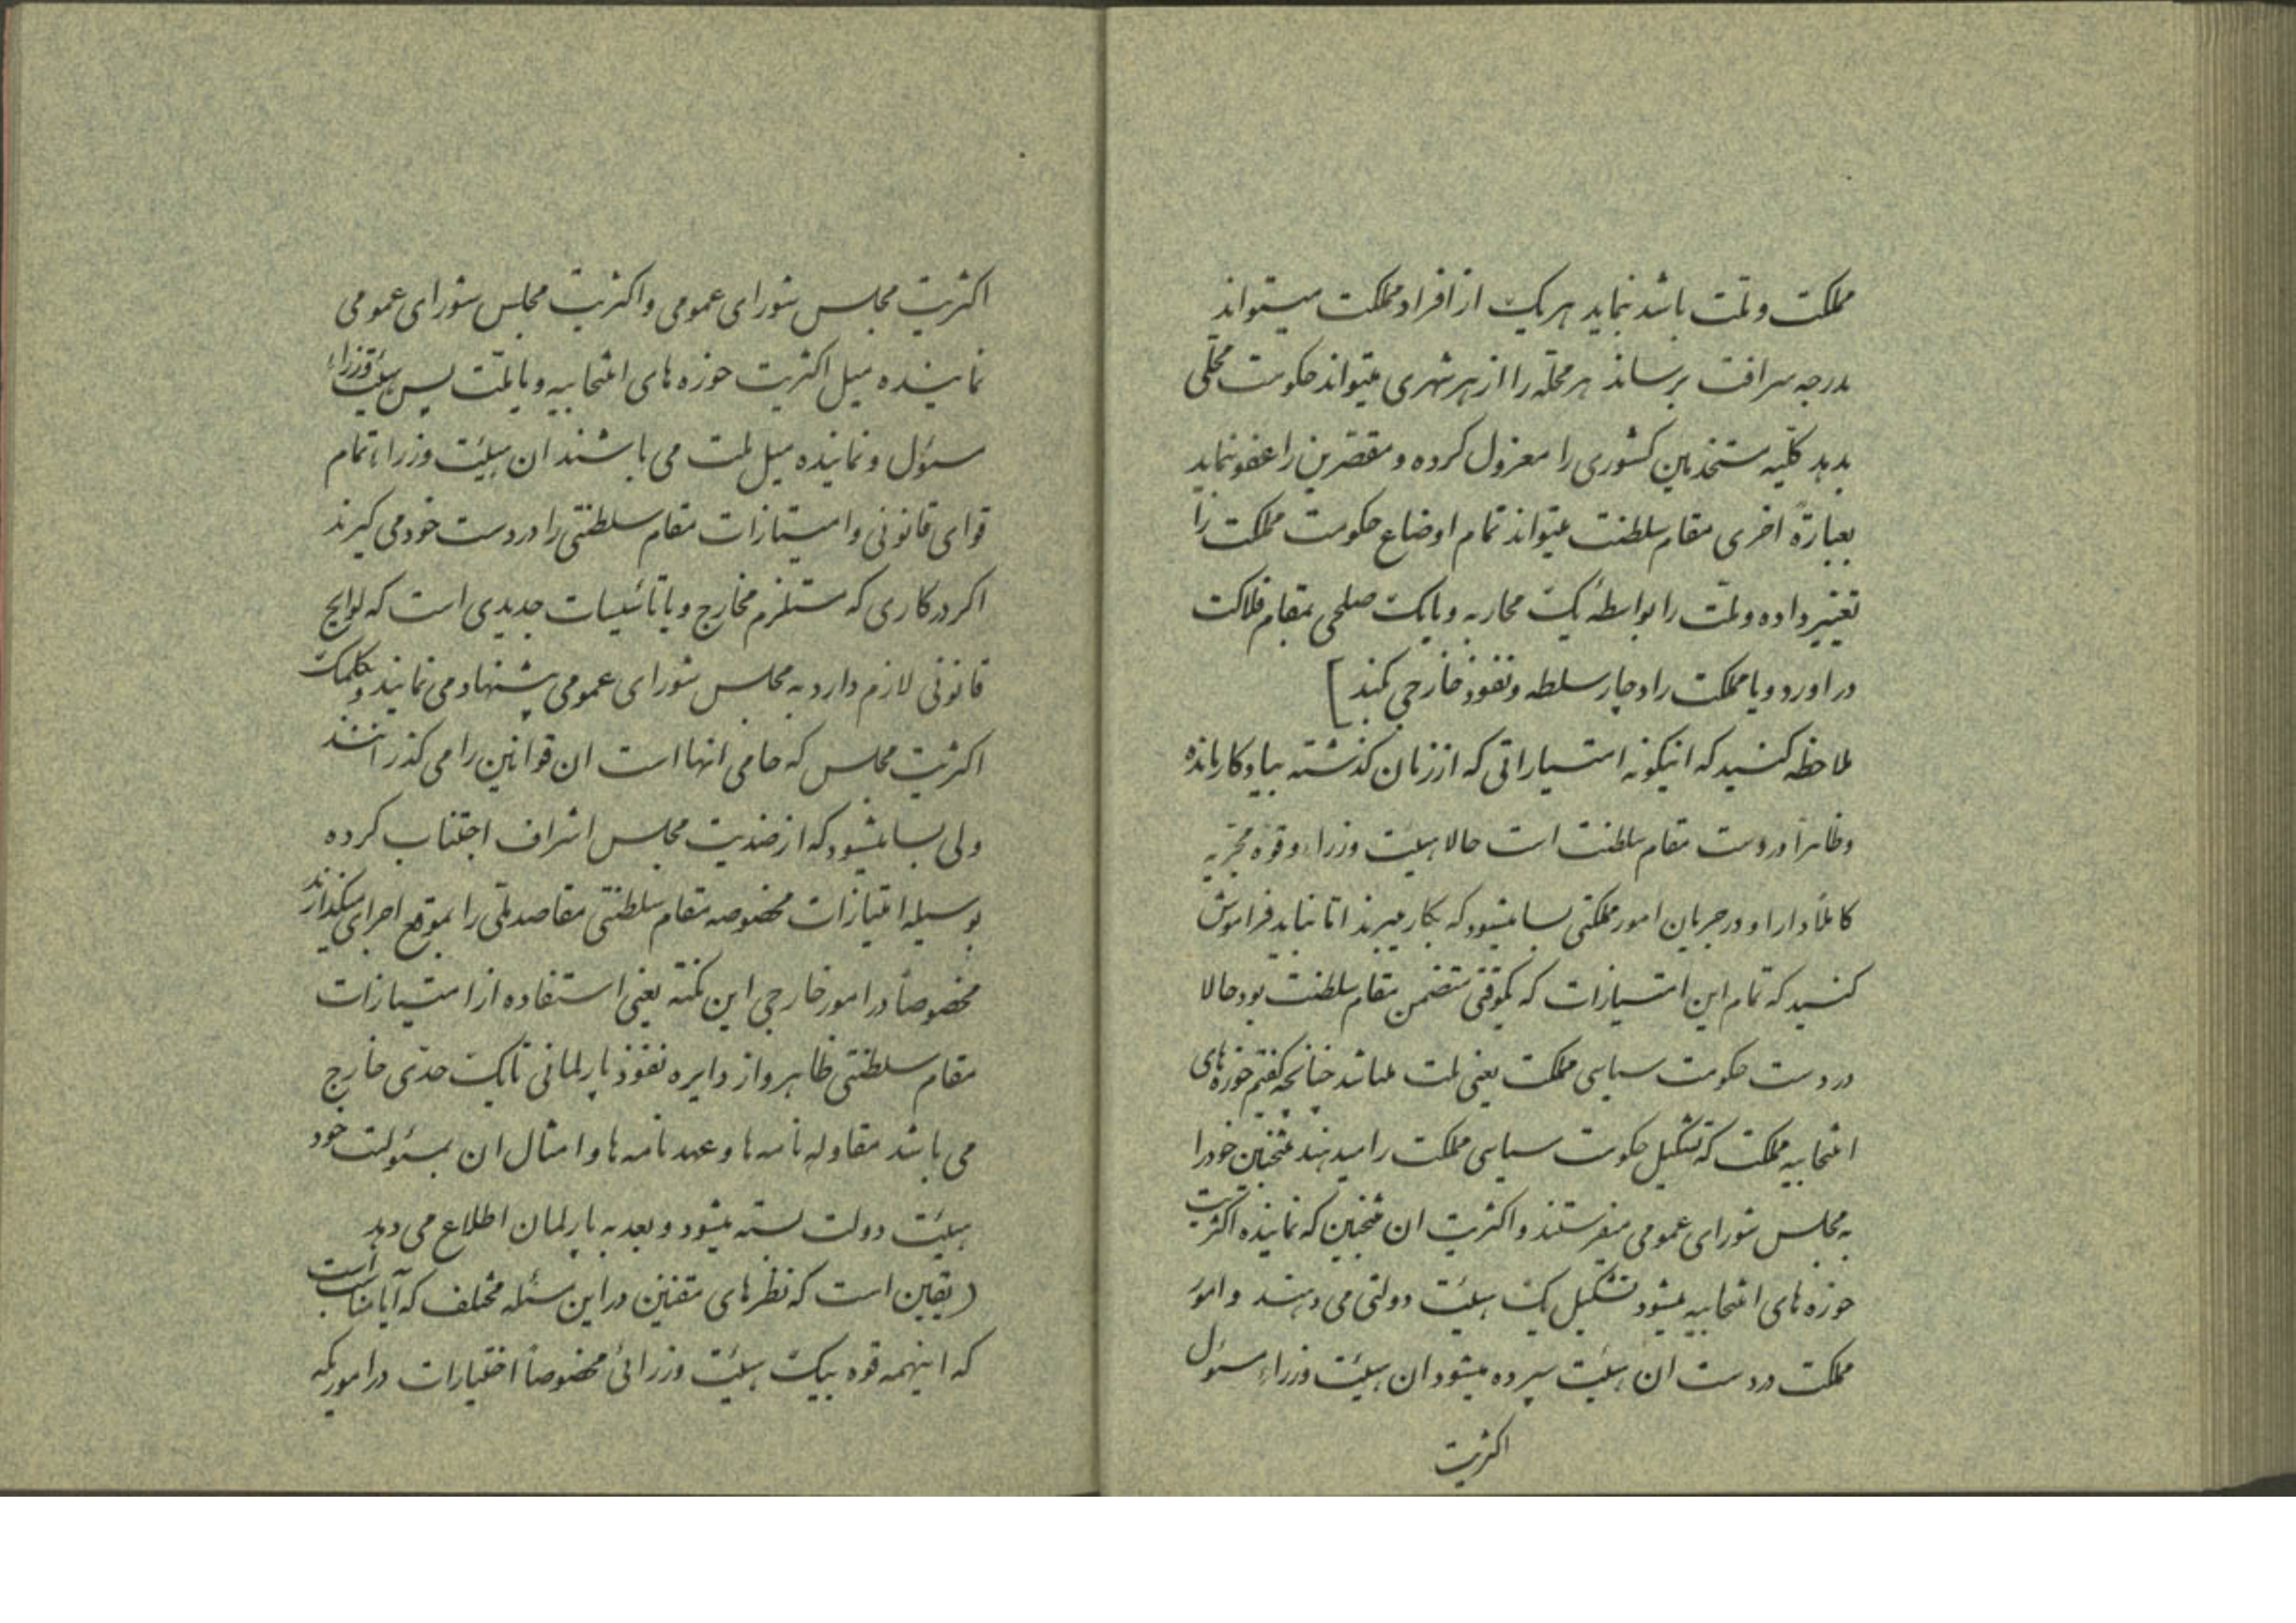 مملکت و ملت باشد نماید هر یک از افراد مملکت میتواند
بدرجه شرافت برساند هر محله را از هر شهری میتواند حکومت محلی
بدهد کلیه مستخدمین کشوری را معزول کرده و مقصرین را عفو نماید
بعبارة اخری مقام سلطنت میتواند تمام اوضاع حکومت مملکت را
تغییر داده و ملت را بواسطهٔ یک محاربه و یا یک صلحی بمقام فلاکت
در اورد و یا مملکت را دچار سلطه و نفوذ خارجی کند ]
ملاحظه کنسید که اینگونه امتسیاراتی که از زمان کذشته بیادکار مانده
و ظاهراً در دست مقام سلطنت است حالا هیئت وزراء و قوه مجریه
کاملاً دارا و در جریان امور مملکتی بسا میشود که بکار میبرند اما نباید فراموش
کنسید که تمام این امتسیازات که یکوقتی متضمن مقام سلطنت بود حالا
در دست حکومت سیاسی مملکت یعنی ملت میباشد چنانچه کفتم حوزه های
انتخابیه مملکت که تشکیل حکومت سیاسی مملکت را میدهند منتخبین خود را
به مجلس شورای عمومی میفرستند و اکثریت ان منتخبین که نماینده اکثریت
حوزه های انتخابیه میشود تشکیل یک هیئت دولتی می دهند و امور
مملکت در دست ان هیئت سپرده میشود ان هیئت وزراء مسئول
اکثریت
اکثریت مجلس شورای عمومی و اکثریت مجلس شورای عمومی
نماینده میل اکثریت حوزه های انتخابیه و یا ملت پس هیئت وزراء
مسئول و نماینده میل ملت می باشند ان هیئت وزراء تمام
قوای قانونی و امتیازات مقام سلطنتی را در دست خود می کیرند
اکر در کاری که مستلزم مخارج و یا تأسیسات جدیدی است که لوایح
قانونی لازم دارد به مجلس شورای عمومی پیشنهاد می نمایند و بکمک
اکثریت مجلس که حامی انها است ان قوانین را می کذرانند
ولی بسا میشود که از ضدیت مجلس اشراف اجتناب کرده
بوسیله امتیازات مخصوصه مقام سلطنتی مقاصد ملی را بموقع اجرای میکذارند
مخصوصاً در امور خارجی این نکته یعنی استفاده از امتیازات
مقام سلطنتی ظاهر و از دایره نفوذ پارلمانی تا یک حدی خارج
می باشد مقاوله نامه ها و عهد نامه ها و امثال ان بمسئولت خود
هیئت دولت بسته میشود و بعد به پارلمان اطلاع می دهد
( یقین است که نظرهای مقننین در این مسئله مختلف که آیا مناسب است
که اینهمه قوه بیک هیئت وزرائی مخصوصاً اختیارات در امور یکه